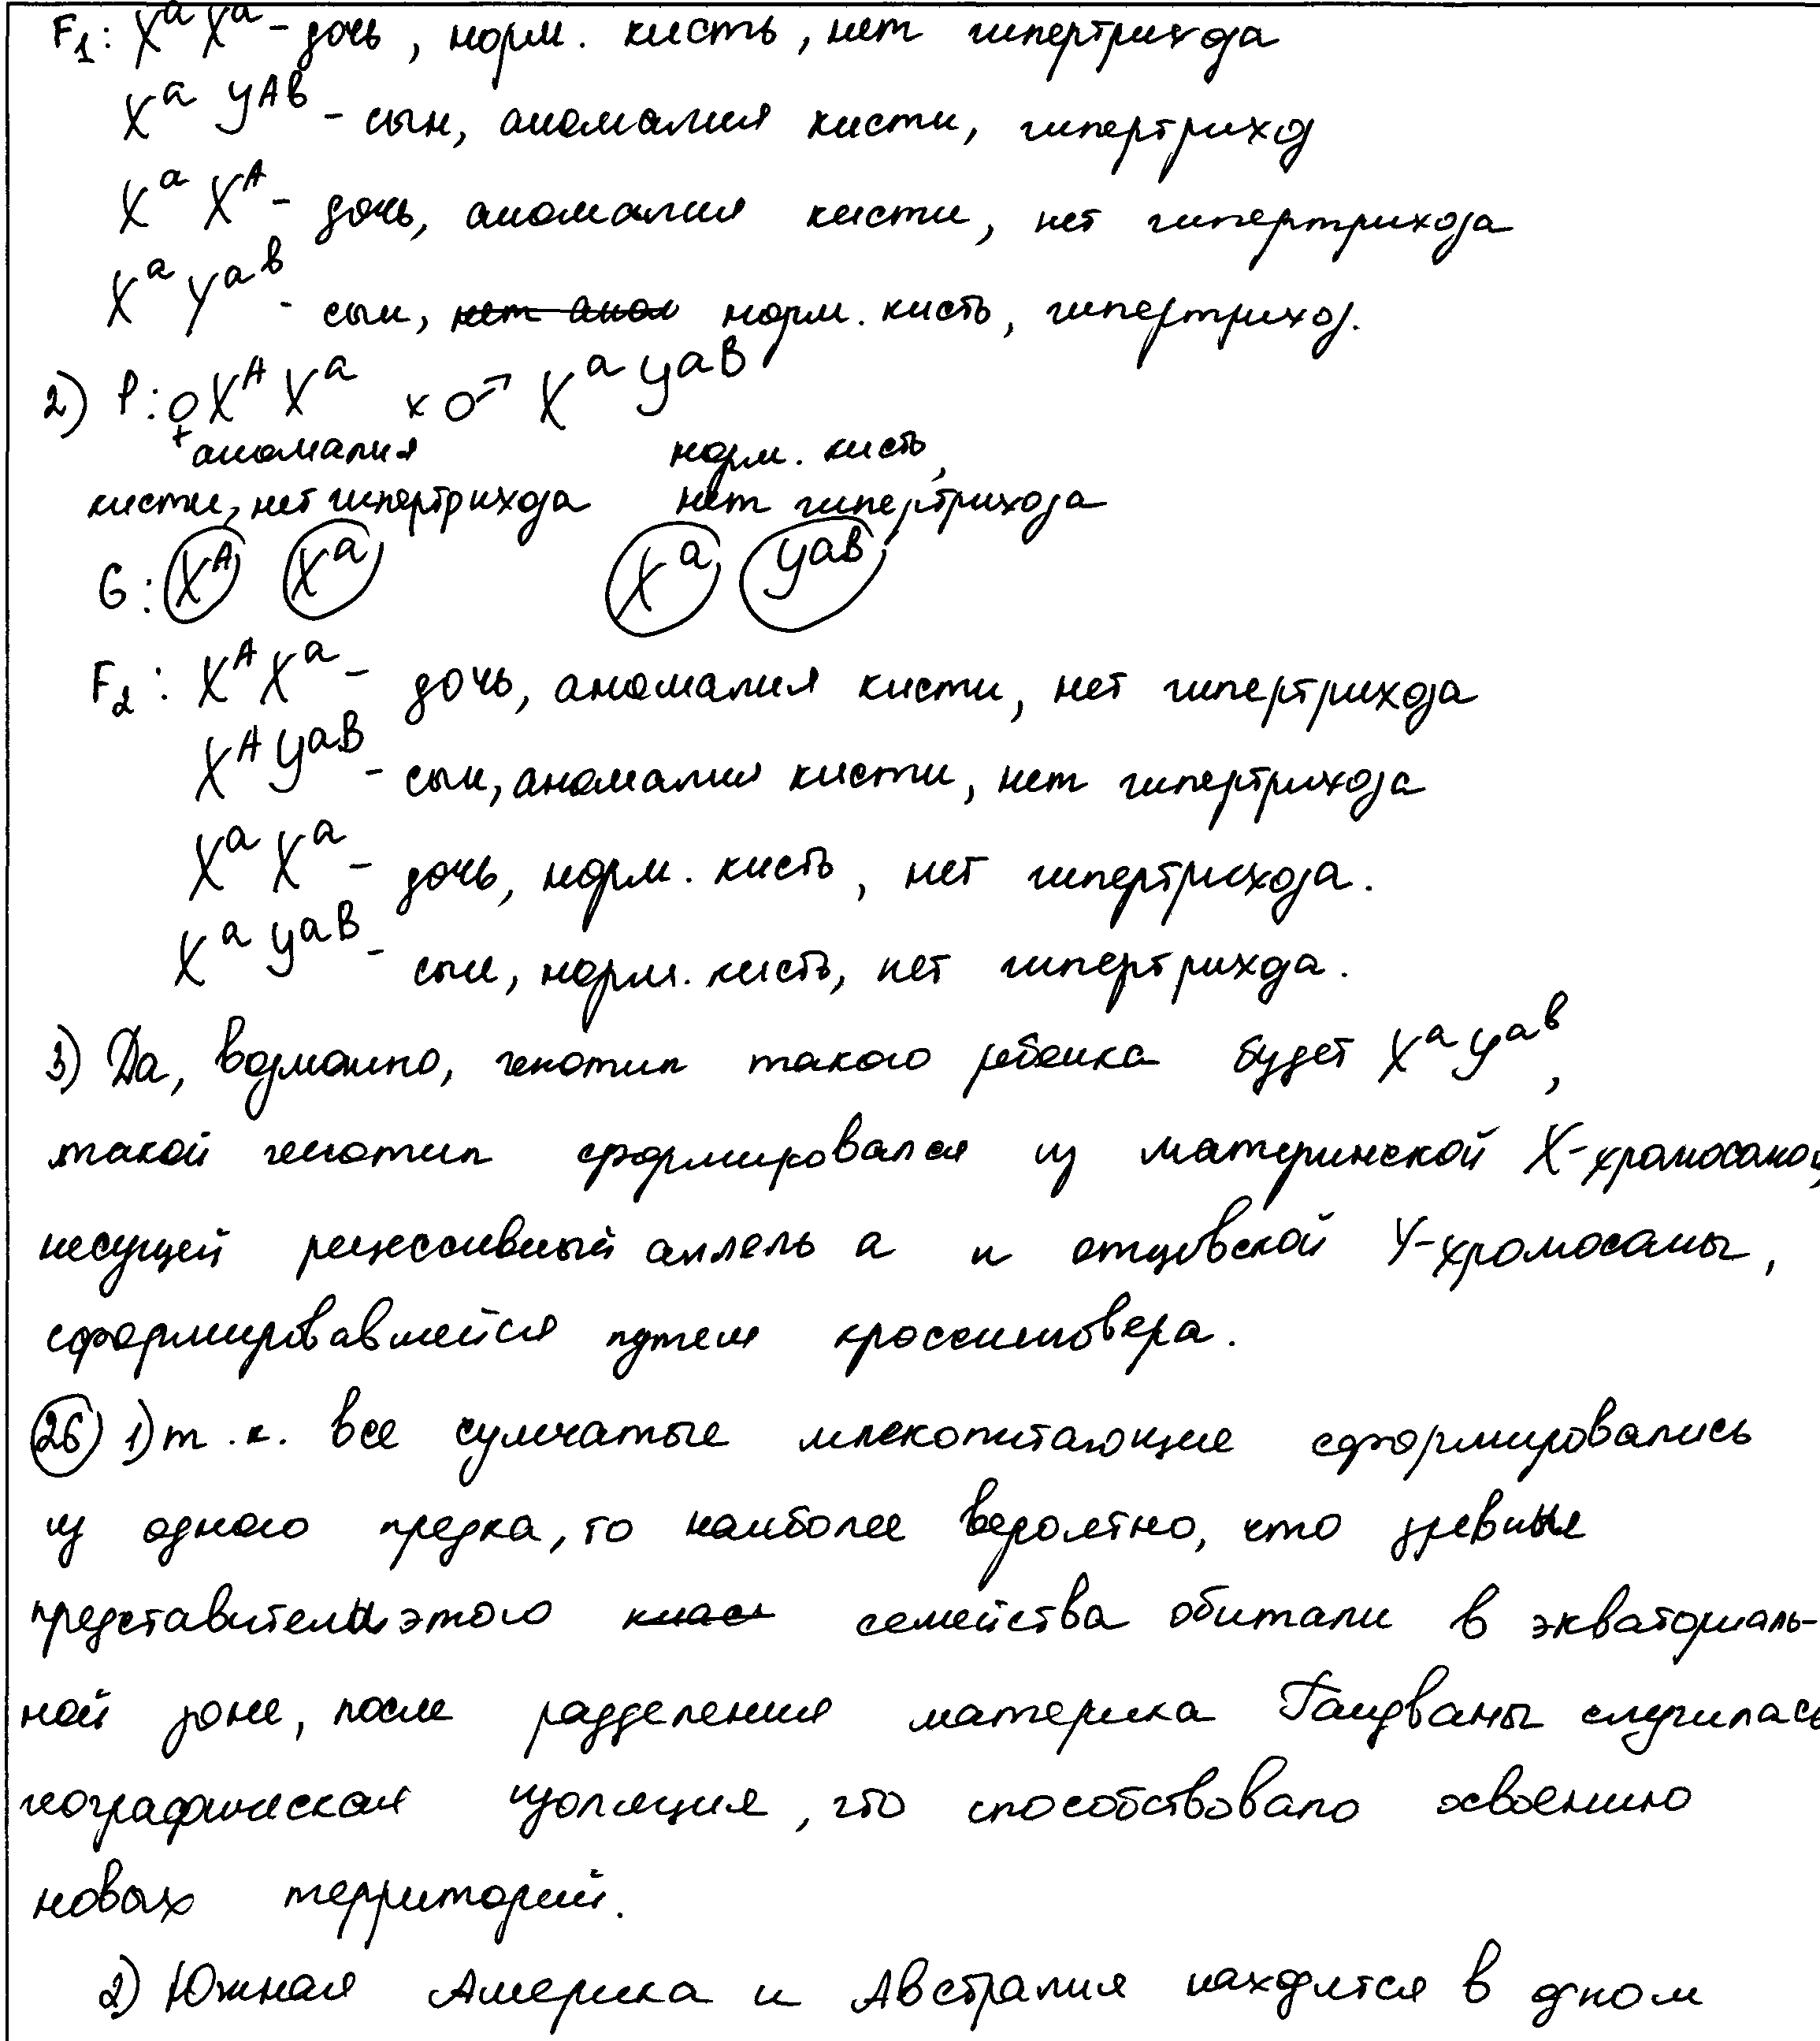 F₁: XᵃXᵃ - дочь, норм. кисть, нет гипертрихоза
Xᵃ Yᴬᵇ - сын, аномалия кисти, гипертрихоз
Xᵃ Xᴬ - дочь, аномалия кисти, нет гипертрихоза
Xᵃ Yᵃᵇ - сын, нет аном норм. кисть, гипертрихоз.
2) P: ♀ Xᴬ Xᵃ x ♂ Xᵃ Yᵃᴮ
аномалия норм. кисть,
кисти, нет гипертрихоза нет гипертрихоза
G: Xᴬ Xᵃ Xᵃ Yᵃᴮ
F₂: XᴬXᵃ - дочь, аномалия кисти, нет гипертрихоза
XᴬYᵃᴮ - сын, аномалия кисти, нет гипертрихоза
Xᵃ Xᵃ - дочь, норм. кисть, нет гипертрихоза.
Xᵃ Yᵃᴮ - сын, норм. кисть, нет гипертрихза.
3) Да, возможно, генотип такого ребенка будет Xᵃ Yᵃᵇ,
такой генотип сформировался из материнской X-хромосомой,
несущей рецессивный аллель а и отцовской Y-хромосомы,
сформировавшейся путем кроссинговера.
26) 1) т.к. все сумчатые млекопитающие сформировались
из одного предка, то наиболее вероятно, что древние
представители этого класс семейства обитали в экваториаль-
ной зоне, после разделения материка Гандваны случилась
географическая изоляция, что способствовало освоению
новых территорий.
2) Южная Америка и Австралия находятся в одном